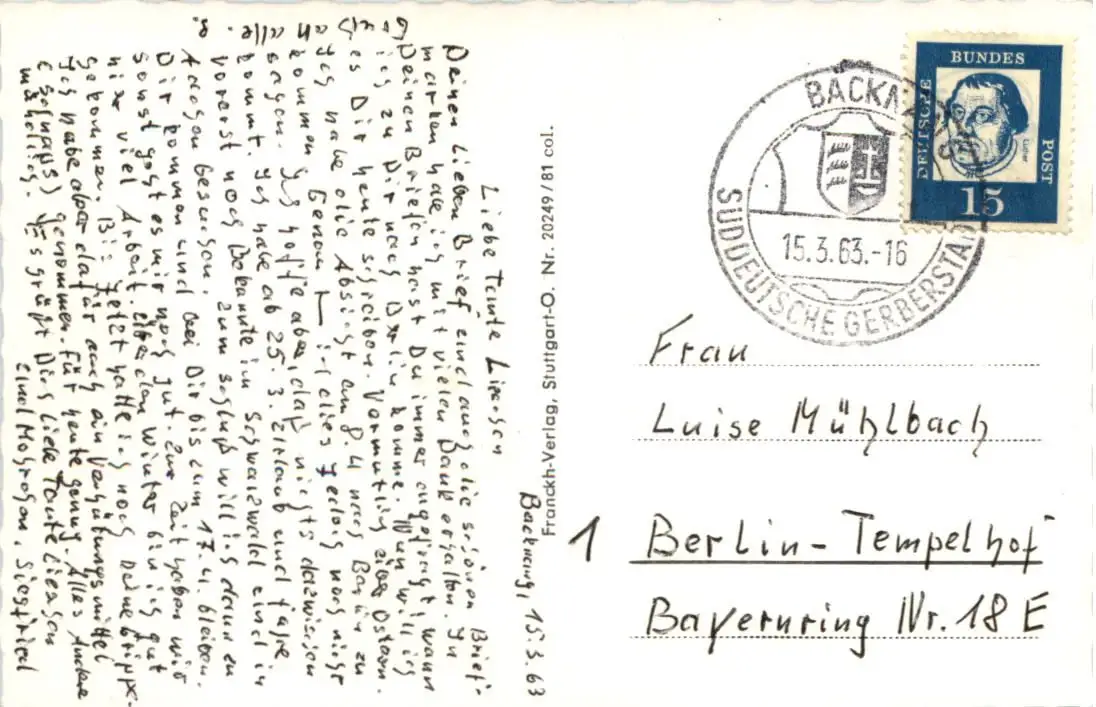 Backnang, 15.3.63
Liebe Tante Lieschen
Deinen lieben Brief und auch die schönen Brief-
marken habe ich mit vielen Dank erhalten. In
Deinen Briefen hast Du immer angefragt, wann
ich zu Dir nach Berlin komme. Nun will ich
es Dir heute schreiben. Vermutlich über Ostern.
Ich habe die Absicht am 8.4 nach Berlin zu
kommen. Genau ist dies jedoch noch nicht
sagen. Ich hoffe aber, daß nichts dazwischen
kommt. Ich habe ab 25.3. Urlaub und fahre
vorerst noch Bekannte im Schwarzwald und in
besuchen. Zum Schluß will ich dann zu
Dir kommen und bei Dir bis zum 17.4. bleiben.
Sonst geht es mir noch gut. Zur Zeit haben wir
nicht viel Arbeit. Über den Winter bin ich gut
gekommen. Bis jetzt hatte ich noch keine Grippe.
Ich habe aber dafür auch ein Verhütungsmittel
(Schnaps) genommen. Für heute genug. Alles Andere
mündlich. Es grüßt Dich liebe Tante Lieschen
Siegfried
Franckh-Verlag, Stuttgart-O. Nr. 20249/81 col.
BACKNANG
15.3.63.-16
SÜDDEUTSCHE GERBERSTADT
DEUTSCHE
BUNDES
POST
Luther
15
Frau
Luise Mühlbach
1 Berlin-Tempelhof
Bayernring Nr. 18 E